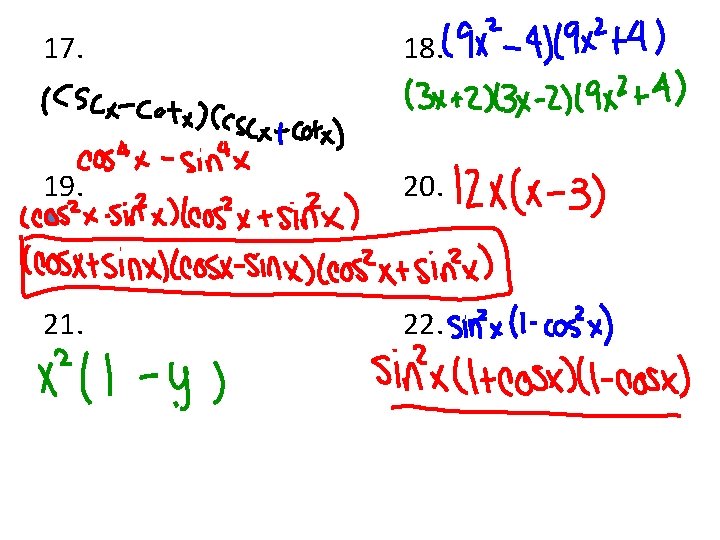 17.
(cscx-cotx)(cscx+cotx)
18. (9x²-4)(9x²+4)
(3x+2)(3x-2)(9x²+4)
19. cos⁴x - sin⁴x
(cos²x-sin²x)(cos²x+sin²x)
(cosx+sinx)(cosx-sinx)(cos²x+sin²x)
20. 12x(x-3)
21.
x²(1-y)
22. sin²x(1-cos²x)
sin²x(1+cosx)(1-cosx)